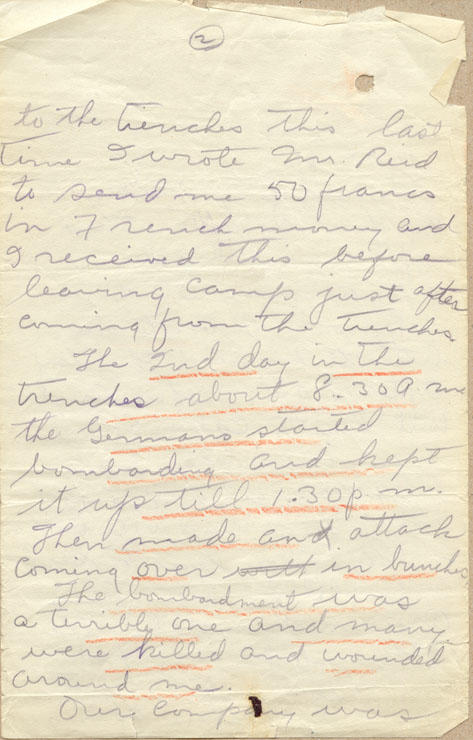 2
to the trenches this last
time I wrote Mr. Reid
to send me 50 francs
in French money and
I received this before
leaving camp just after
coming from the trenches.
The 2nd day in the
trenches about 8.30 a m
the Germans started
bombarding and kept
it up till 1.30 p m.
Then made and attack
coming over with in bunches
The bombardment was
a terribly one and many
were killed and wounded
around me.
Our company was